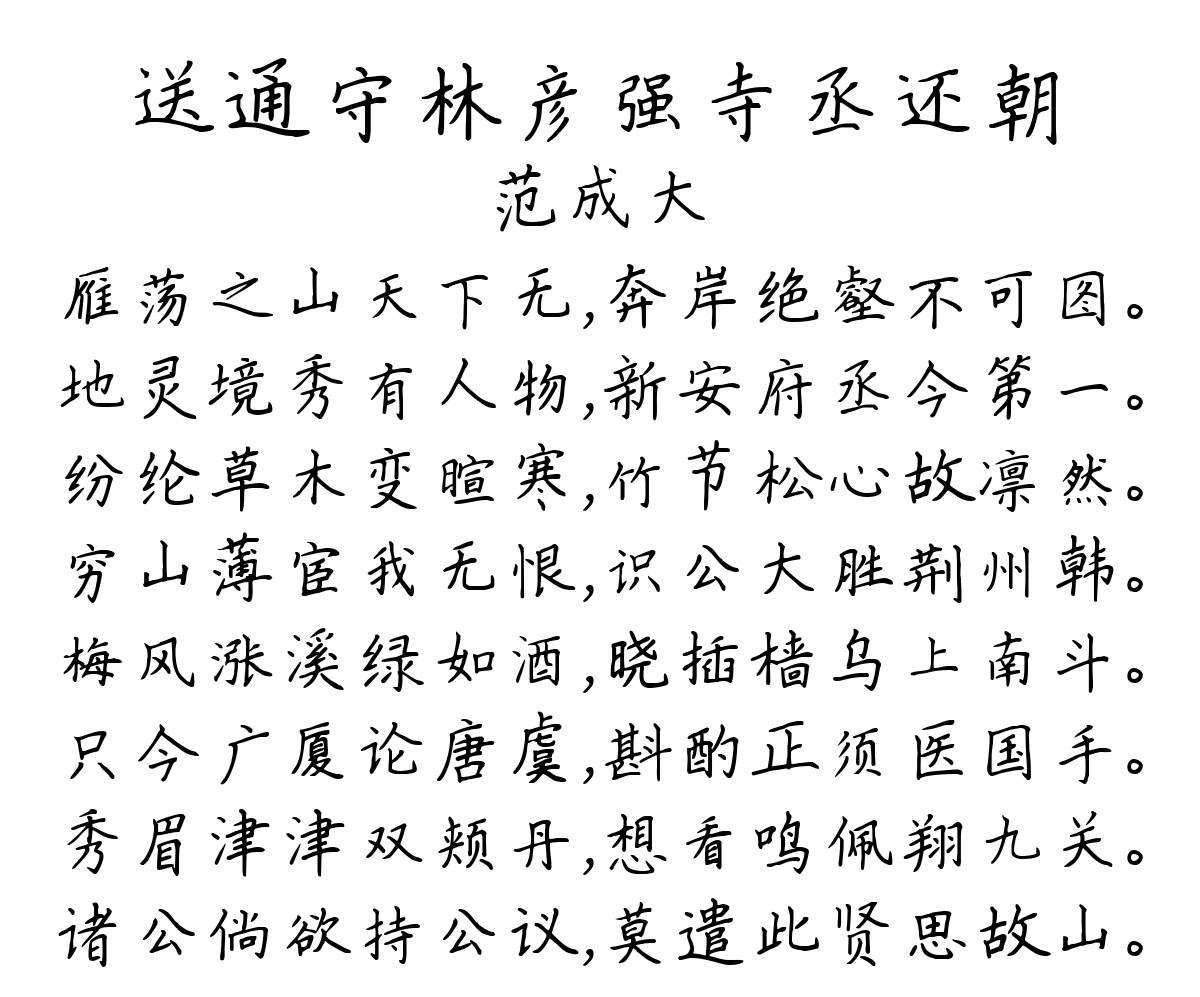 送通守林彦强寺丞还朝
范成大
雁荡之山天下无,奔岸绝壑不可图。
地灵境秀有人物,新安府丞今第一。
纷纶草木变暄寒,竹节松心故凛然。
穷山薄宦我无恨,识公大胜荆州韩。
梅风涨溪绿如酒,晓插樯乌上南斗。
只今广厦论唐虞,斟酌正须医国手。
秀眉津津双颊丹,想看鸣佩翔九关。
诸公倘欲持公议,莫遣此贤思故山。